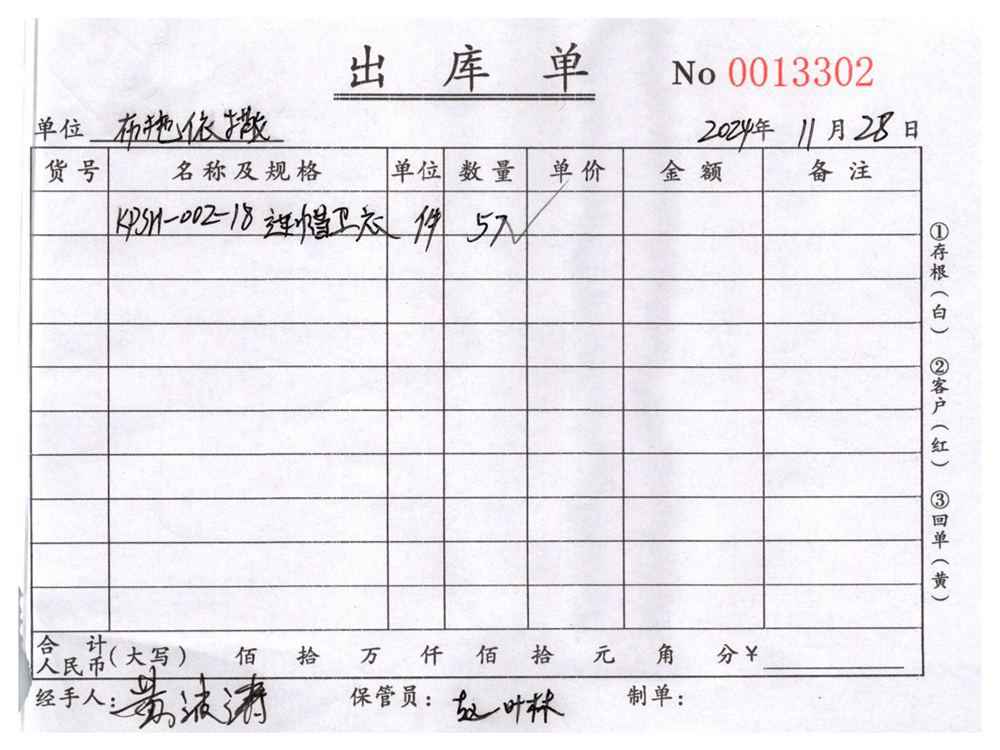 出库单 No 0013302
单位 布艳依撒 2024年 11月28日
货号 名称及规格 单位 数量 单价 金额 备注
KPSH-002-18 连帽卫衣 件 57
合计人民币(大写) 佰 拾 万 仟 佰 拾 元 角 分¥
经手人:黄波涛 保管员:赵叶林 制单:
①存根(白)
②客户(红)
③回单(黄)